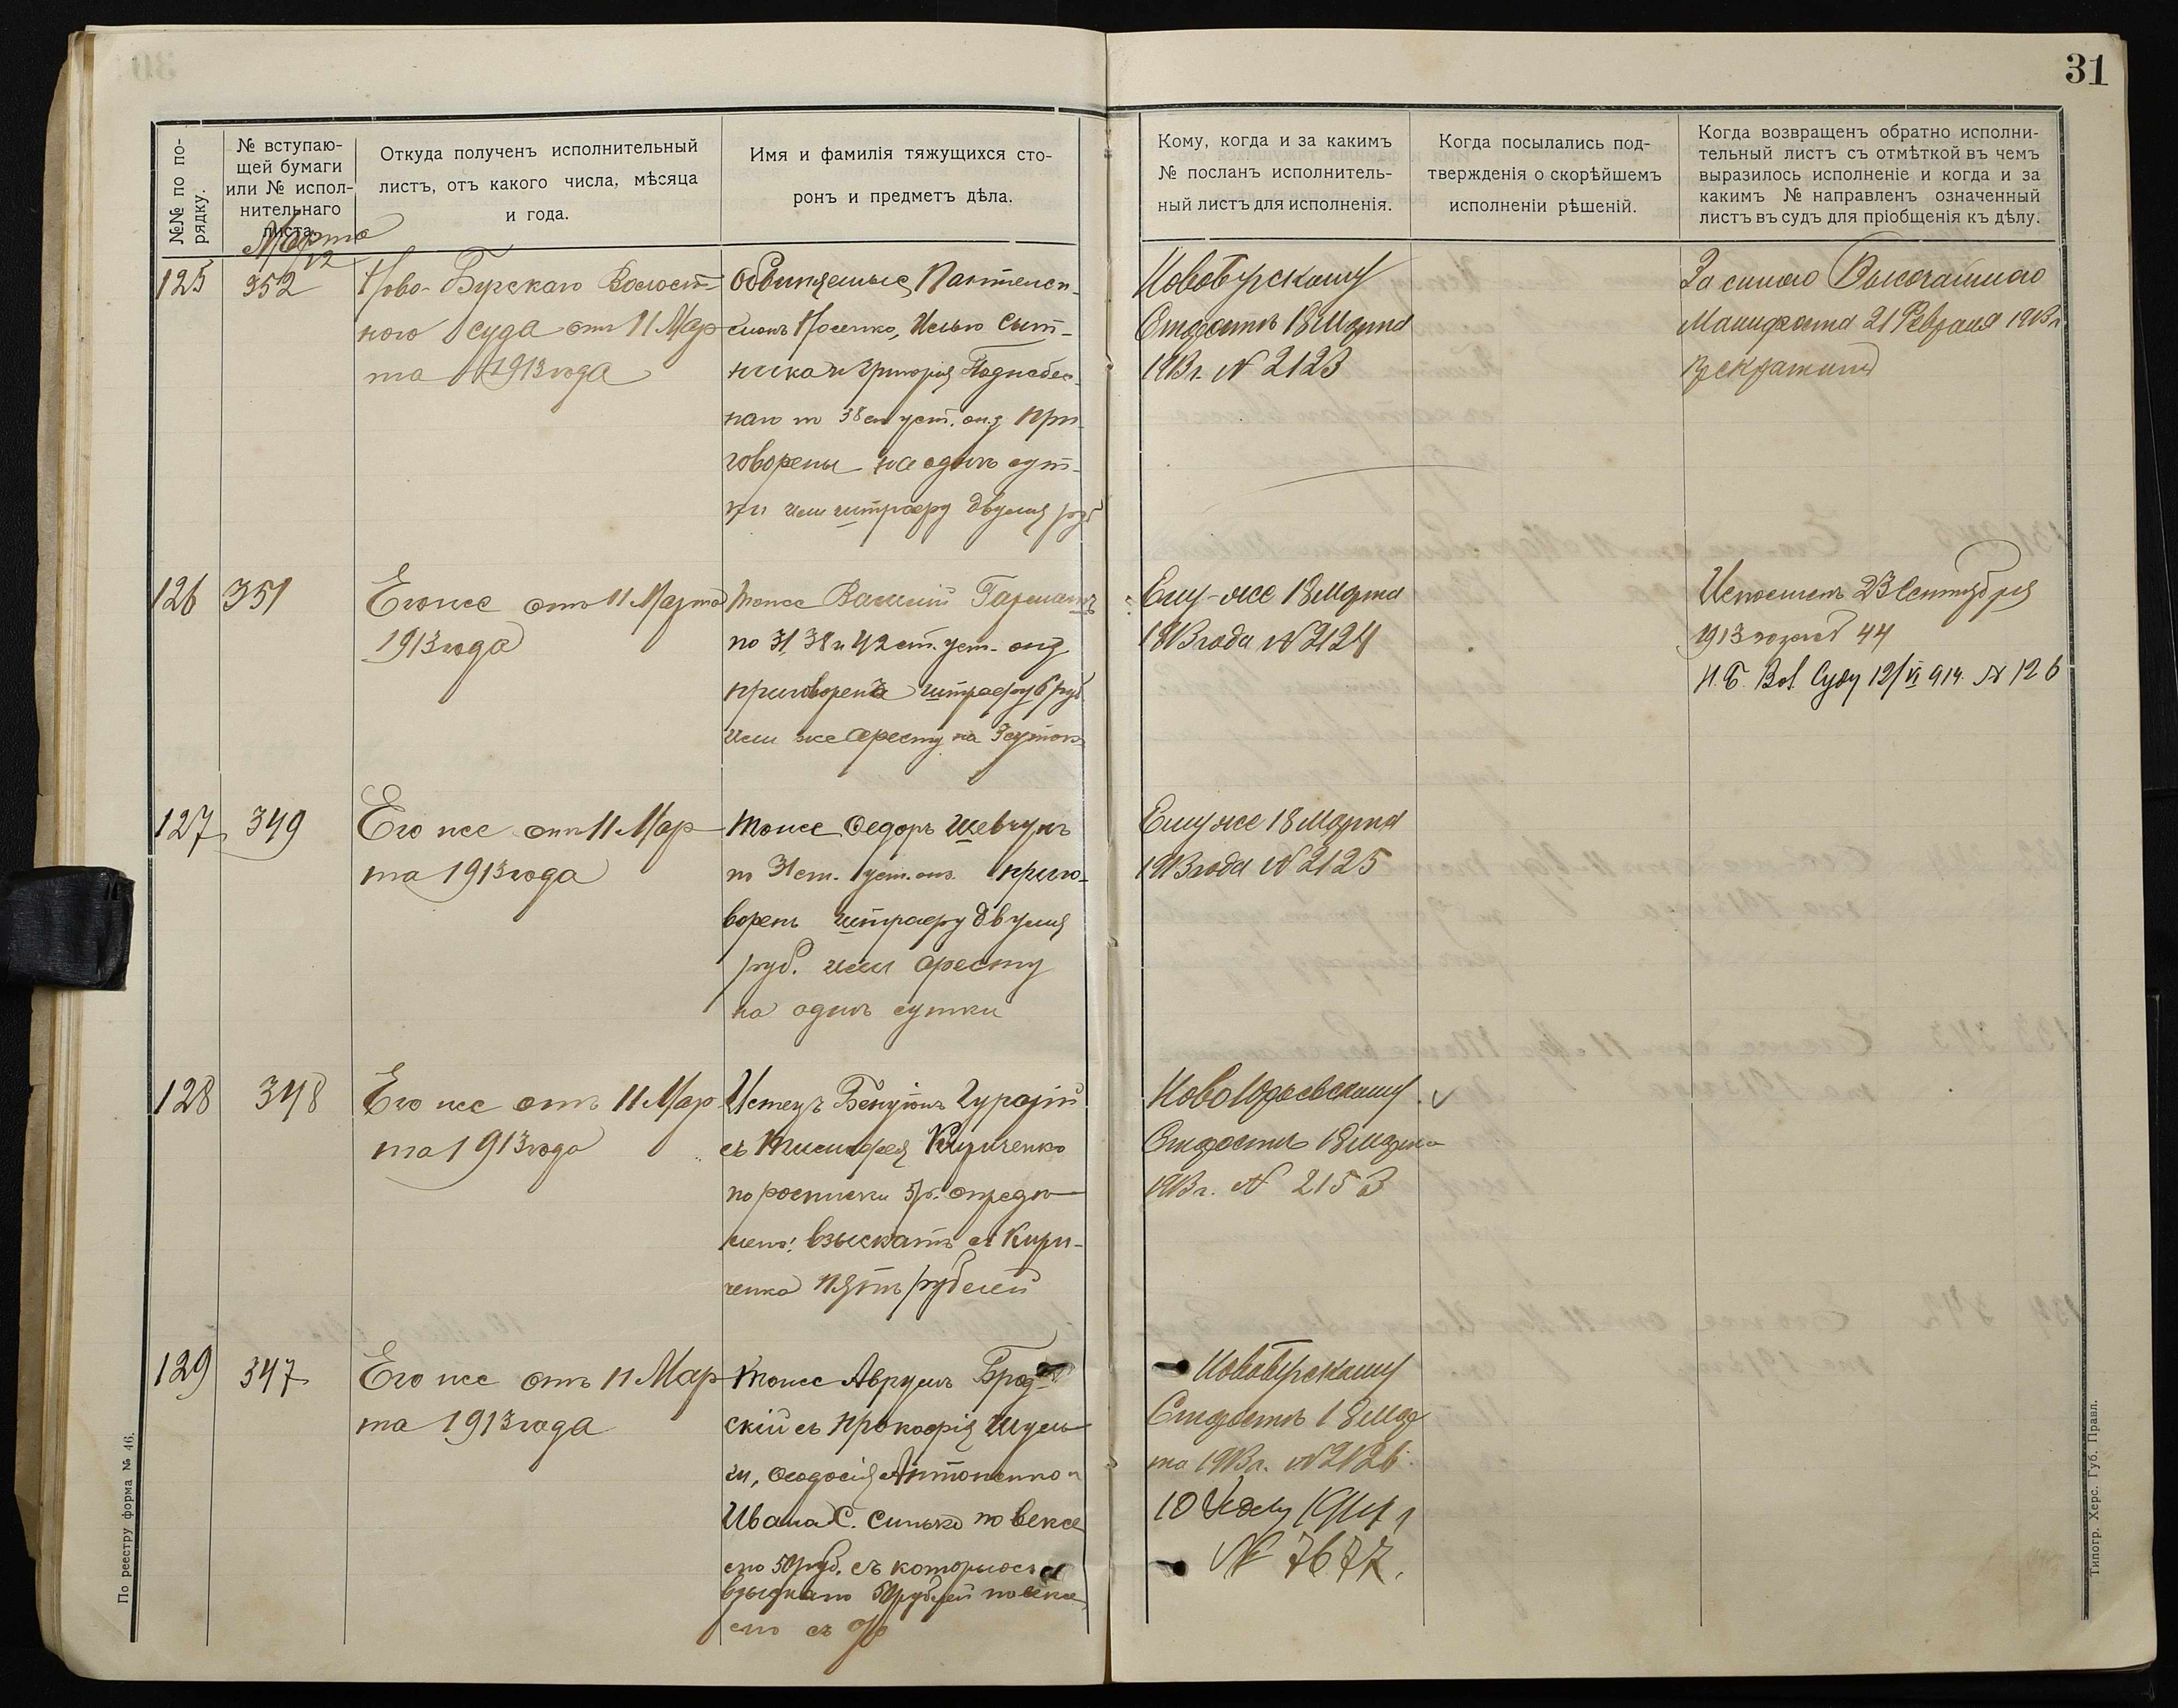 31
№№ по по-
рядку.
№ вступаю-
щей бумаги
или № испол-
нительнаго
листа.
Откуда полученъ исполнительный
листъ, отъ какого числа, мѣсяца
и года.
Имя и фамилія тяжущихся сто-
ронъ и предметъ дѣла.
Кому, когда и за какимъ
№ посланъ исполнитель-
ный листъ для исполненія.
Когда посылались под-
твержденія о скорѣйшемъ
исполненіи рѣшеній.
Когда возвращенъ обратно исполни-
тельный листъ съ отмѣткой въ чемъ
выразилось исполненіе и когда и за
какимъ № направленъ означенный
листъ въ судъ для пріобщенія къ дѣлу.
Марта
12
125
352
Ново-Бугскаго Волост-
ного суда отъ 11 Мар
та 1913 года
Обвиняемые Пантелей-
монъ Носенко, Илью Сыт-
ника и Григорія Поднебес-
наго по 38 ст уст. о н. при
говорены на одни сут-
ки или штрафу двумя руб
Новобугскому
Старостѣ 18 Марта
1913 г. № 2123
За силою Высочайшаго
Манифеста 21 Февраля 1913 г
прекратить
126
351
Его же отъ 11 Марта
1913 года
тоже Василій
по 31, 38 и 42 ст. уст. о н.
приговоренъ штрафу 6 руб
или же аресту на 3 сутокъ
Ему-же 18 Марта
1913 года № 2124
Исполненъ 23 Сентября
1913 года 44
Н. Б. Вол. Суду 12/VI 914. № 126
127
349
Его же отъ 11 Мар
та 1913 года
тоже Ѳедоръ Шевчукъ
по 31 ст. уст. о н. приго-
воренъ штрафу двумя
руб. или аресту
на одни сутки
Ему же 18 Марта
1913 года № 2125
128
348
Его же отъ 11 Мар
та 1913 года
Истецъ Бенціонъ Гурарій
съ Тимофея Кириченко
по росписки 5 р. опредѣ-
лено: взыскать съ Кири-
ченка пять рублей
НовоЮрьевскому
Старостѣ 18 Марта
1913 г. № 2153
129
347
Его же отъ 11 Мар
та 1913 года
тоже Аврумъ Брод-
скій съ Прокофія Шуль-
ги, Ѳеодосія Антоненко и
Ивана С. Синько по вексе
лю 50 руб. съ которыхъ
взыскано 50 рублей по вексе
лю съ %
Новобугскому
Старостѣ 18 Мар
та 1913 г. № 2126.
10 1914 г
№ 7677.
По реестру форма № 46.
Типогр. Херс. Губ. Правл.